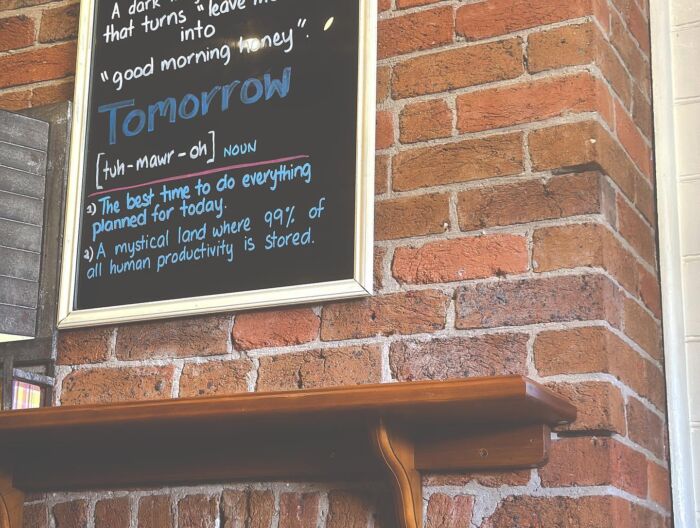 A dark
that turns "leave me
into
"good morning honey".
Tomorrow
[tuh-mawr-oh] NOUN
1) The best time to do everything
planned for today.
2) A mystical land where 99% of
all human productivity is stored.